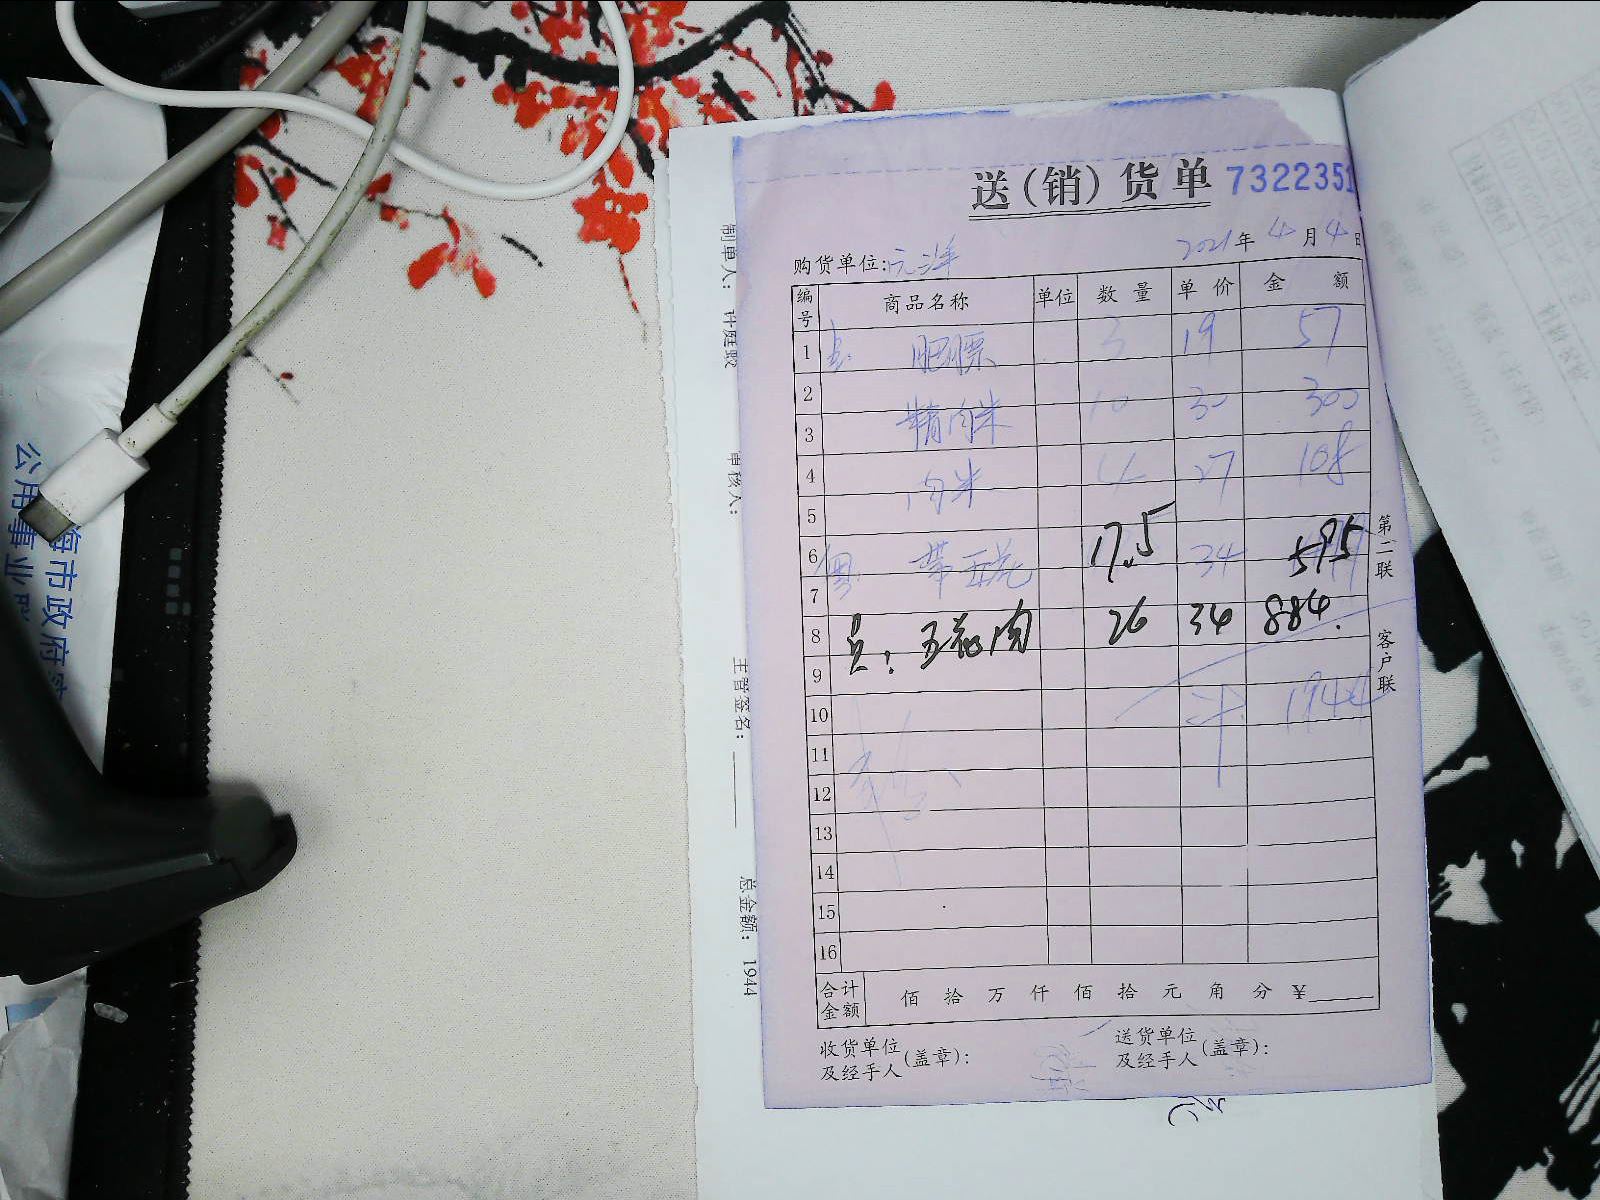 送(销)货单 7322351
2021年 4月4日
购货单位:
编号 商品名称 单位 数量 单价 金额
1 肥膘 3 19 57
2
3 精肉米 10 30 300
4
肉米 4 27 108
5
6 带五花 17.5 34 595
7
8 五花肉 26 34 884.
9
10 计 1944
11
12
13
14
15
16
合计金额 佰 拾 万 仟 佰 拾 元 角 分 ¥
收货单位及经手人(盖章):
送货单位及经手人(盖章):
第二联 客户联
制单人: 计庭蛟
审核人:
主管签名:
总金额: 1944
海市政府
公用事业